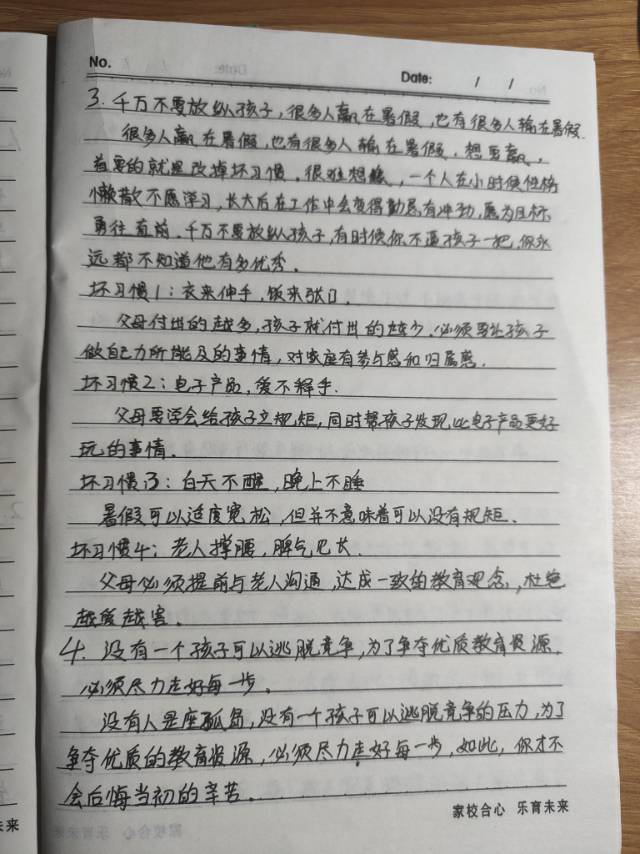 No. Date: / /
3. 千万不要放纵孩子，很多人赢在暑假，也有很多人输在暑假.
很多人赢在暑假，也有很多人输在暑假，想要赢，
首要的就是改掉坏习惯。很难想像，一个人在小时候性格
懒散不愿学习，长大后在工作中会变得勤恳有冲劲，愿为目标
勇往直前。千万不要放纵孩子，有时候你不逼孩子一把，你永
远都不知道他有多优秀。
坏习惯1：衣来伸手，饭来张口.
父母付出的越多，孩子就付出的越少。必须要让孩子
做自己力所能及的事情，对家庭有参与感和归属感.
坏习惯2：电子产品，爱不释手.
父母要学会给孩子立规矩，同时帮孩子发现比电子产品更好
玩的事情.
坏习惯3：白天不醒，晚上不睡
暑假可以适度宽松，但并不意味着可以没有规矩.
坏习惯4：老人撑腰，脾气见长.
父母必须提前与老人沟通，达成一致的教育观念，杜绝
越爱越害。
4. 没有一个孩子可以逃脱竞争，为了争夺优质教育资源，
必须尽力走好每一步。
没有人是座孤岛，没有一个孩子可以逃脱竞争的压力，为了
争夺优质的教育资源，必须尽力走好每一步，如此，你才不
会后悔当初的辛苦.
家校合心 乐育未来
未来